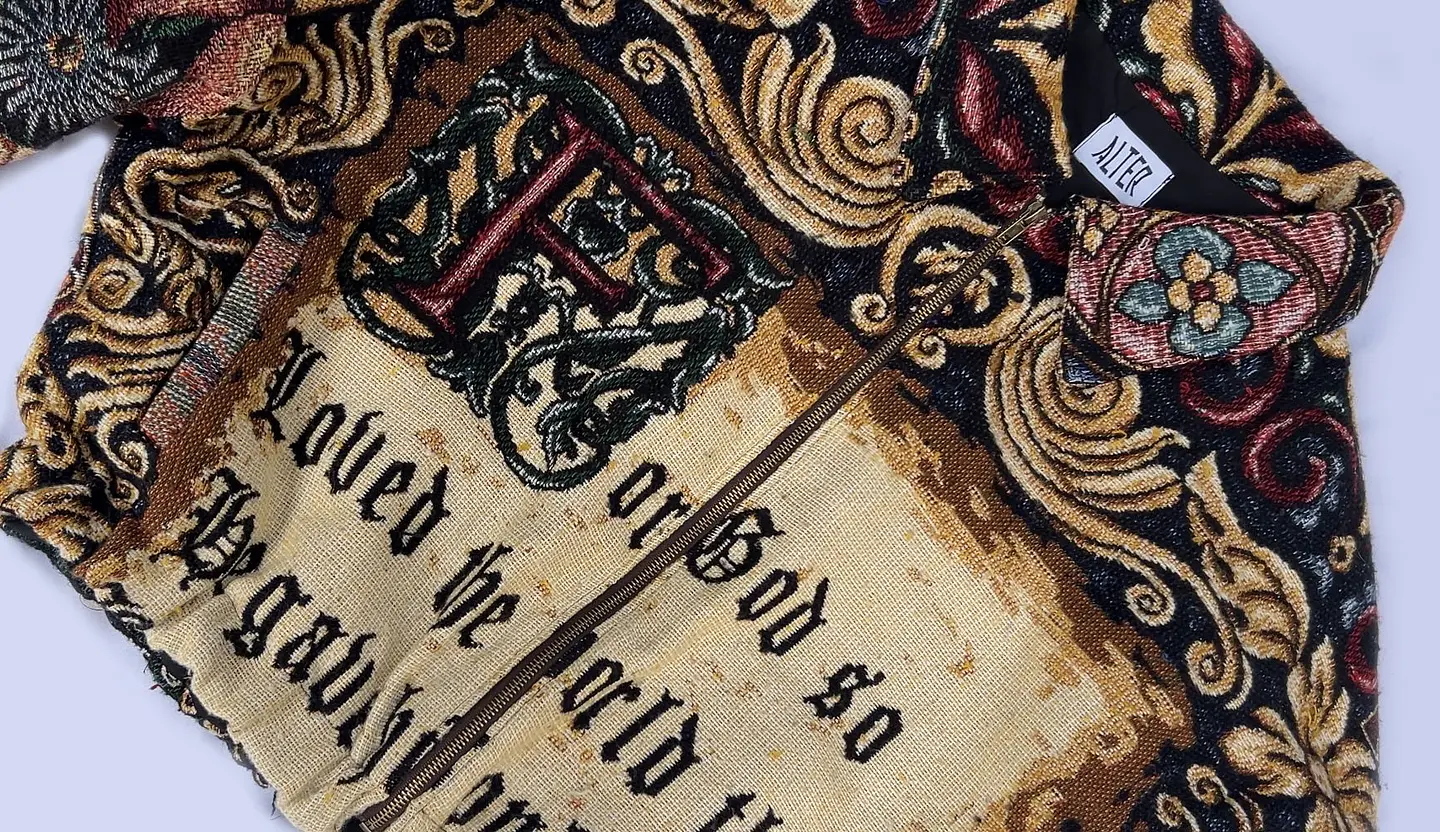 ALTER
For God so
Loved he orld th
He gave